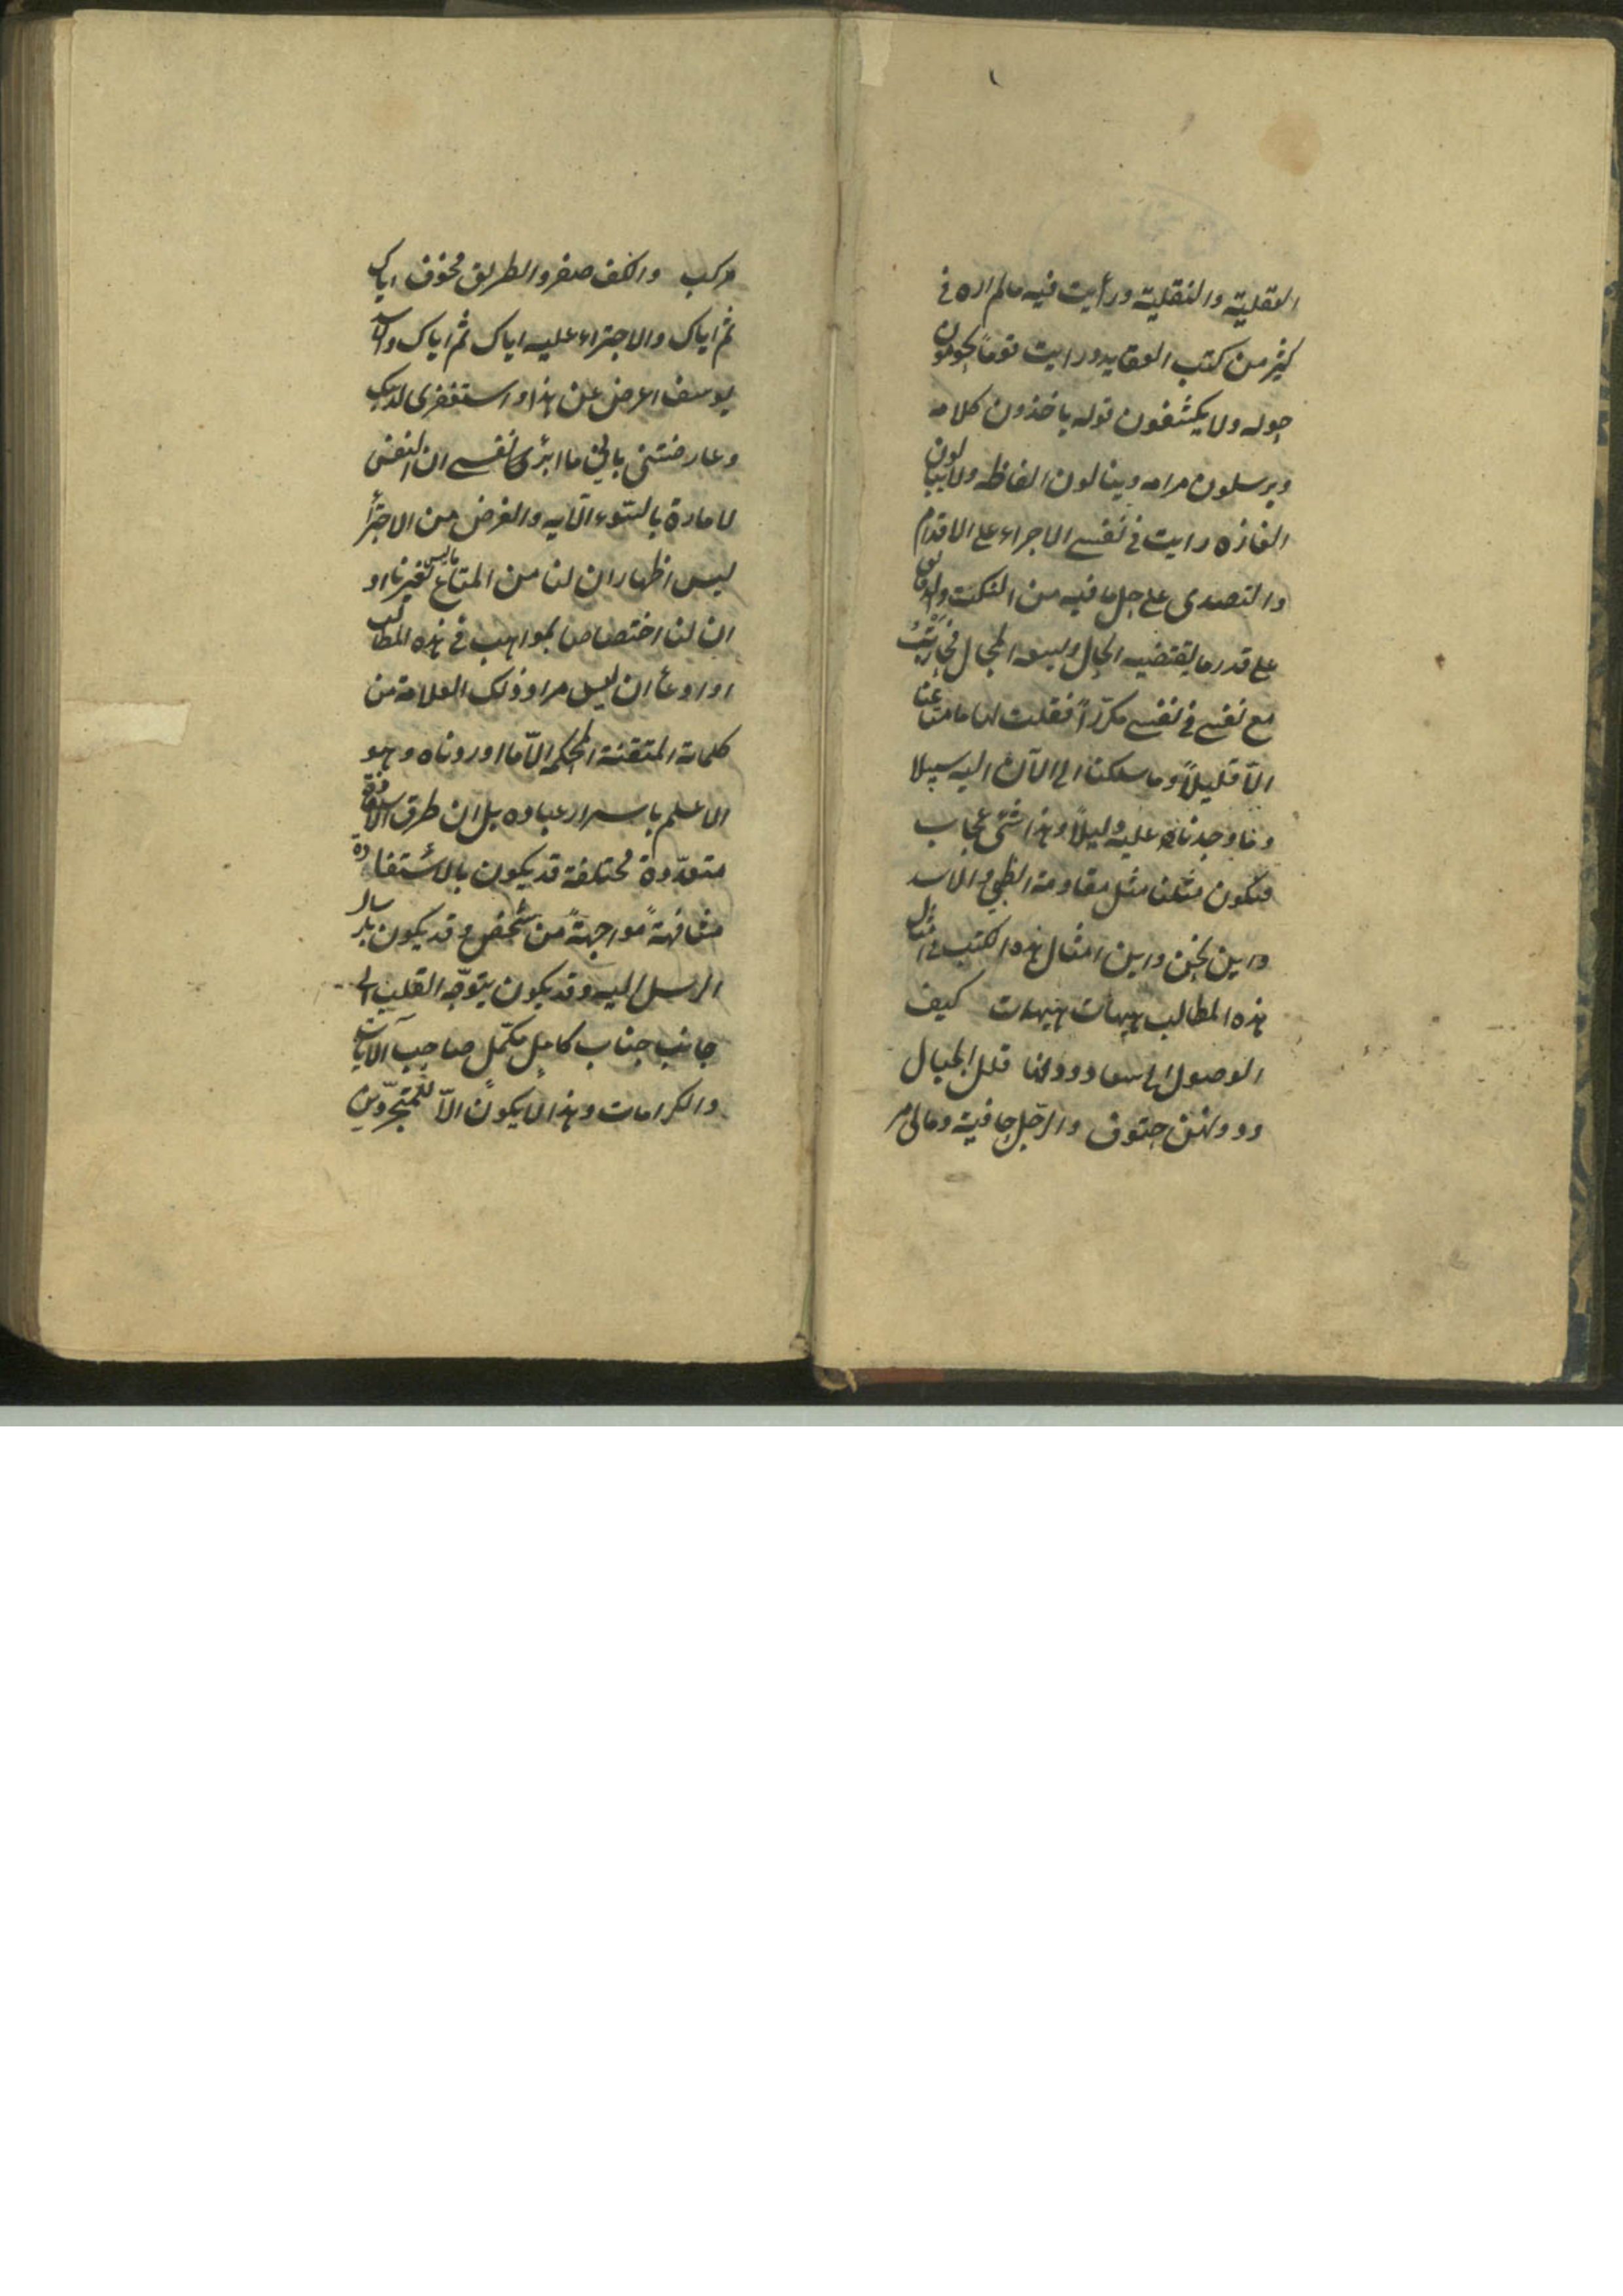 العقلية والنقلية ورأيت فيه مالم اره فى
كثير من كتب العقايد ورايت قوماً يحومون
حوله ولا يكشفون قوله ياخذون كلامه
ويرسلون مرامه وينالون الفاظه ولا يبالون
الغازه رايت فى نفسى الاجراء على الاقدام
والتصدى على حل ما فيه من النكت والدقايق
على قدر ما يقتضيه الحال ويسعه المجال
مع نفسى فى نفسى مكرّراً فقلت لها ما متاعنا
الّا قليلاً وما سلكنا الى الآن اليه سبيلا
وما وجدنا عليه دليلاً وهذا شئ عجاب
فيكون مثلنا مثل مقاومة الظبى والاسد
واين نحن واين امثال هذه الكتب فى امثال
هذه المطالب هيهات هيهات كيف
الوصول الى سعاد ودونها قلل الجبال
ودونهن حتوف والرّجل حافية ومالى
مركب والكف صفر والطريق مخوف اياك
ثم اياك والاجتراء عليه اياك ثم اياك
يوسف اعرض عن هذا واستغفرى لذنبك
وعارضتنى بانى ما ابرّئ نفسى ان النفس
لامارة بالسّوء الآيه والغرض من الاجتراء
ليس اظهار ان لنا من المتاع ماليس لغيرنا او
ان لنا اختصاص بمواهب فى هذه المطالب
او ادعاء ان ليس مراد ذلك العلامة من
كلماته المتقنة المحكمه الّا ما اوردناه وهو
الاعلم باسرار عباده بل ان طرق الاستفادة
متعدّدة مختلفة قد يكون بالاستفادة
مشافهةً مواجهةً من شخص وقد يكون بارسال
الرسل اليه وقد يكون بتوجّه القلب الى
جانب جناب كامل مكمّل صاحب الآيات
والكرامات وهذا لا يكون الّا للمتجرّدين